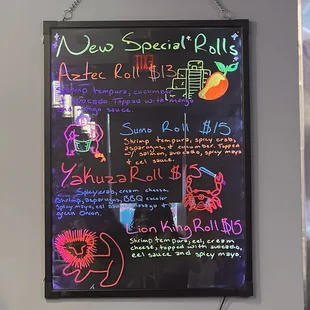 New Special Rolls
Aztec Roll $13
Shrimp tempura, cucumber
avocado. Topped with mango
mango sauce.
Sumo Roll $15
Shrimp tempura, spicy crab,
asparagus, + cucumber. Topped
w/ salmon, avocado, spicy mayo
+ eel sauce.
Yakuza Roll $15
Spicy crab, cream cheese,
shrimp, asparagus, BBQ
spicy mayo, eel sauce, masago +
green onion.
Lion King Roll $15
Shrimp tempura, eel, cream
cheese, topped with avocado,
eel sauce and spicy mayo.